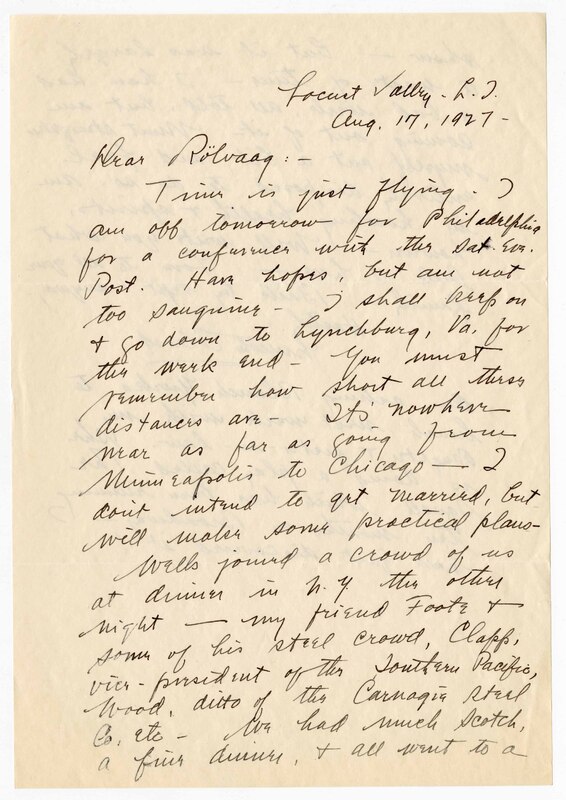 Locust Valley - L. I.
Aug. 17, 1927 -
Dear Rölvaag: -
Time is just flying - I
am off tomorrow for Philadelphia
for a conference with the Sat. Eve.
Post. Have hopes, but am not
too sanguine - I shall keep on
+ go down to Lynchburg, Va. for
the week end - You must
remember how short all these
distances are - It's nowhere
near as far as going from
Minneapolis to Chicago - I
don't intend to get married, but
will make some practical plans -
Wells joined a crowd of us
at dinner in N.Y. the other
night - my friend Foote +
some of his steel crowd, Clapp,
vice-president of the Southern Pacific,
Wood, ditto of the Carnagie Steel
Co. etc - We had much Scotch,
a fine dinner, + all went to a